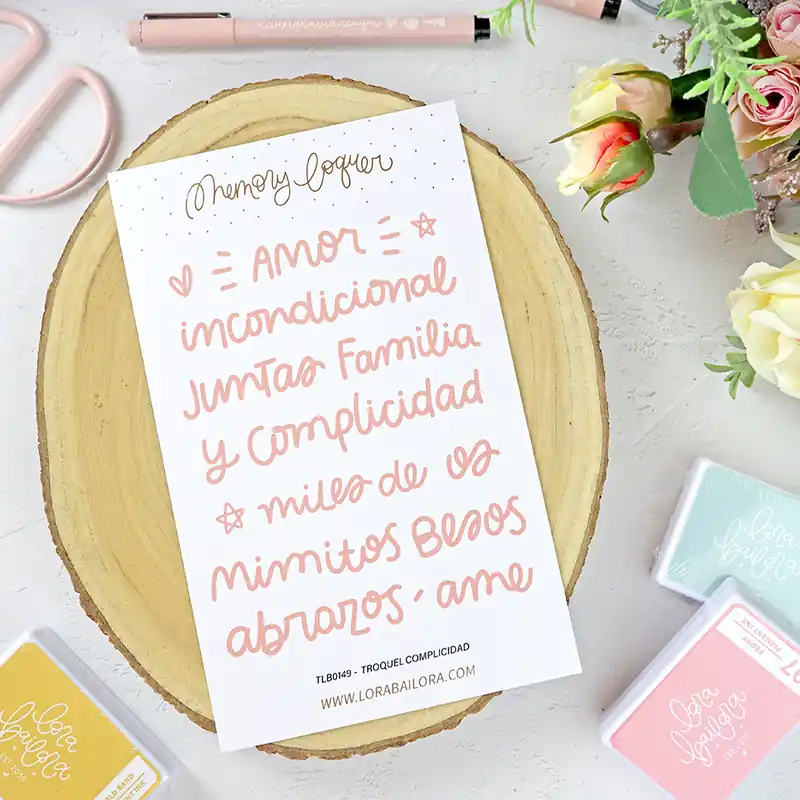 Memory loquer
AMOR
incondicional
Juntas Familia
y complicidad
miles de os
mimitos Besos
abrazos ame
TLB0149 - TROQUEL COMPLICIDAD
WWW.LORABAILORA.COM
lora
bailora
lora
bailora
EST 2014
PEONY
PIGMENT INK
lora
bailora
EST 2014